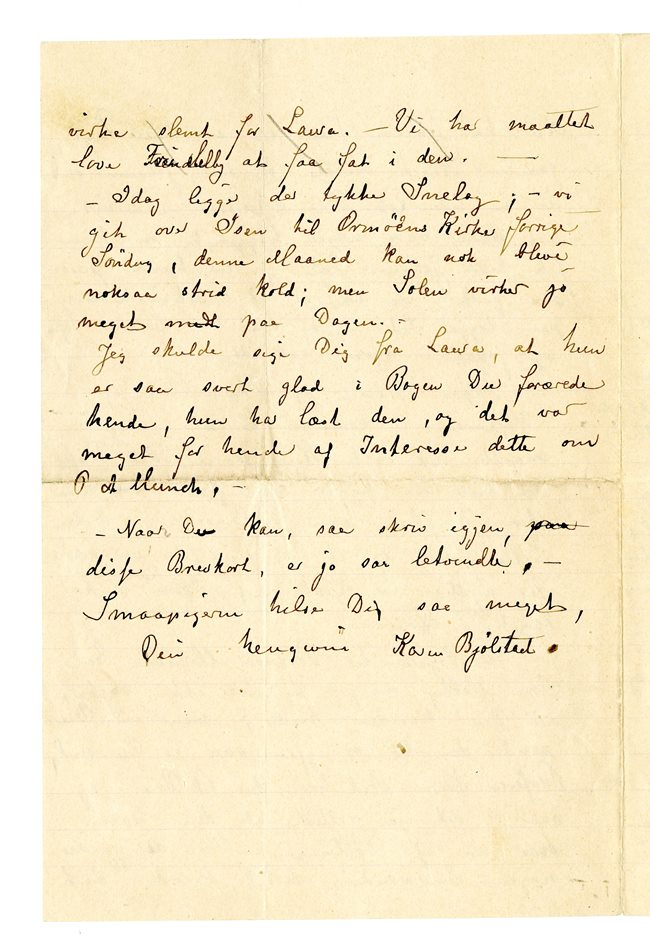 virke slemt for Laura. – Vi har maattet
love at faa fat i den. —
– Idag ligge der tykke Snelag; – vi
gik over Isen til Ormöens Kirke forrige
Söndag, denne Maaned kan nok blive
noksaa strid kold; men Solen virker jo
meget midt paa Dagen. –
Jeg skulde sige Dig fra Laura, at hun
er saa svert glad i Bogen Du forærede
hende, hun har læst den, og det var
meget for hende af Interesse dette om
P A Munch, –
– Naar Du kan, saa skriv igjen, paa
disse Brevkort, er jo saa letvindte, –
Smaapigerne hilse Dig saa meget,
Din hengivne Karen Bjölstad.